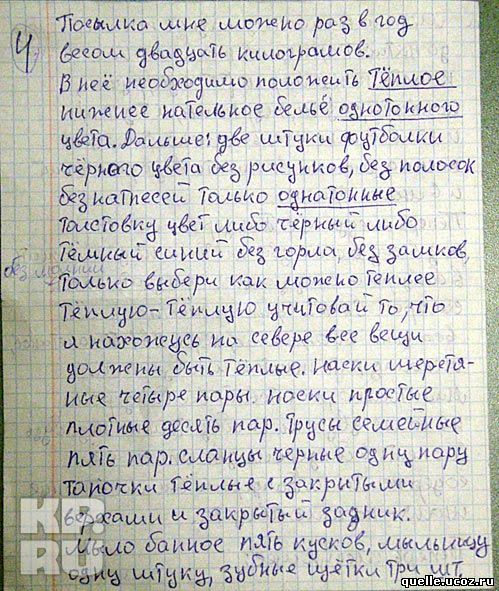 4
Посылка мне можно раз в год
весом двадцать килограмов.
В неё необходимо положить тёплое
нижнее нательное бельё однотонного
цвета. Дальше: две штуки футболки
чёрного цвета без рисунков, без полосок
без натпесей только однатонные
Толстовку цвет либо чёрный либо
тёмный синий без горла, без замков,
без молний
только выбери как можно теплее
тёплую-тёплую учитовай то, что
я нахожусь на севере все вещи
должены быть тёплые. Наски шерстя-
ные четыре пары, носки простые
плотные десять пар. Трусы семейные
пять пар. сланцы черные одну пару
тапочки тёплые с закритыми
верхами и закрытый задник.
Мыло банное пять кусков, мыльницу
одну штуку, зубные щётки три шт.
KP.RU
quelle.ucoz.ru